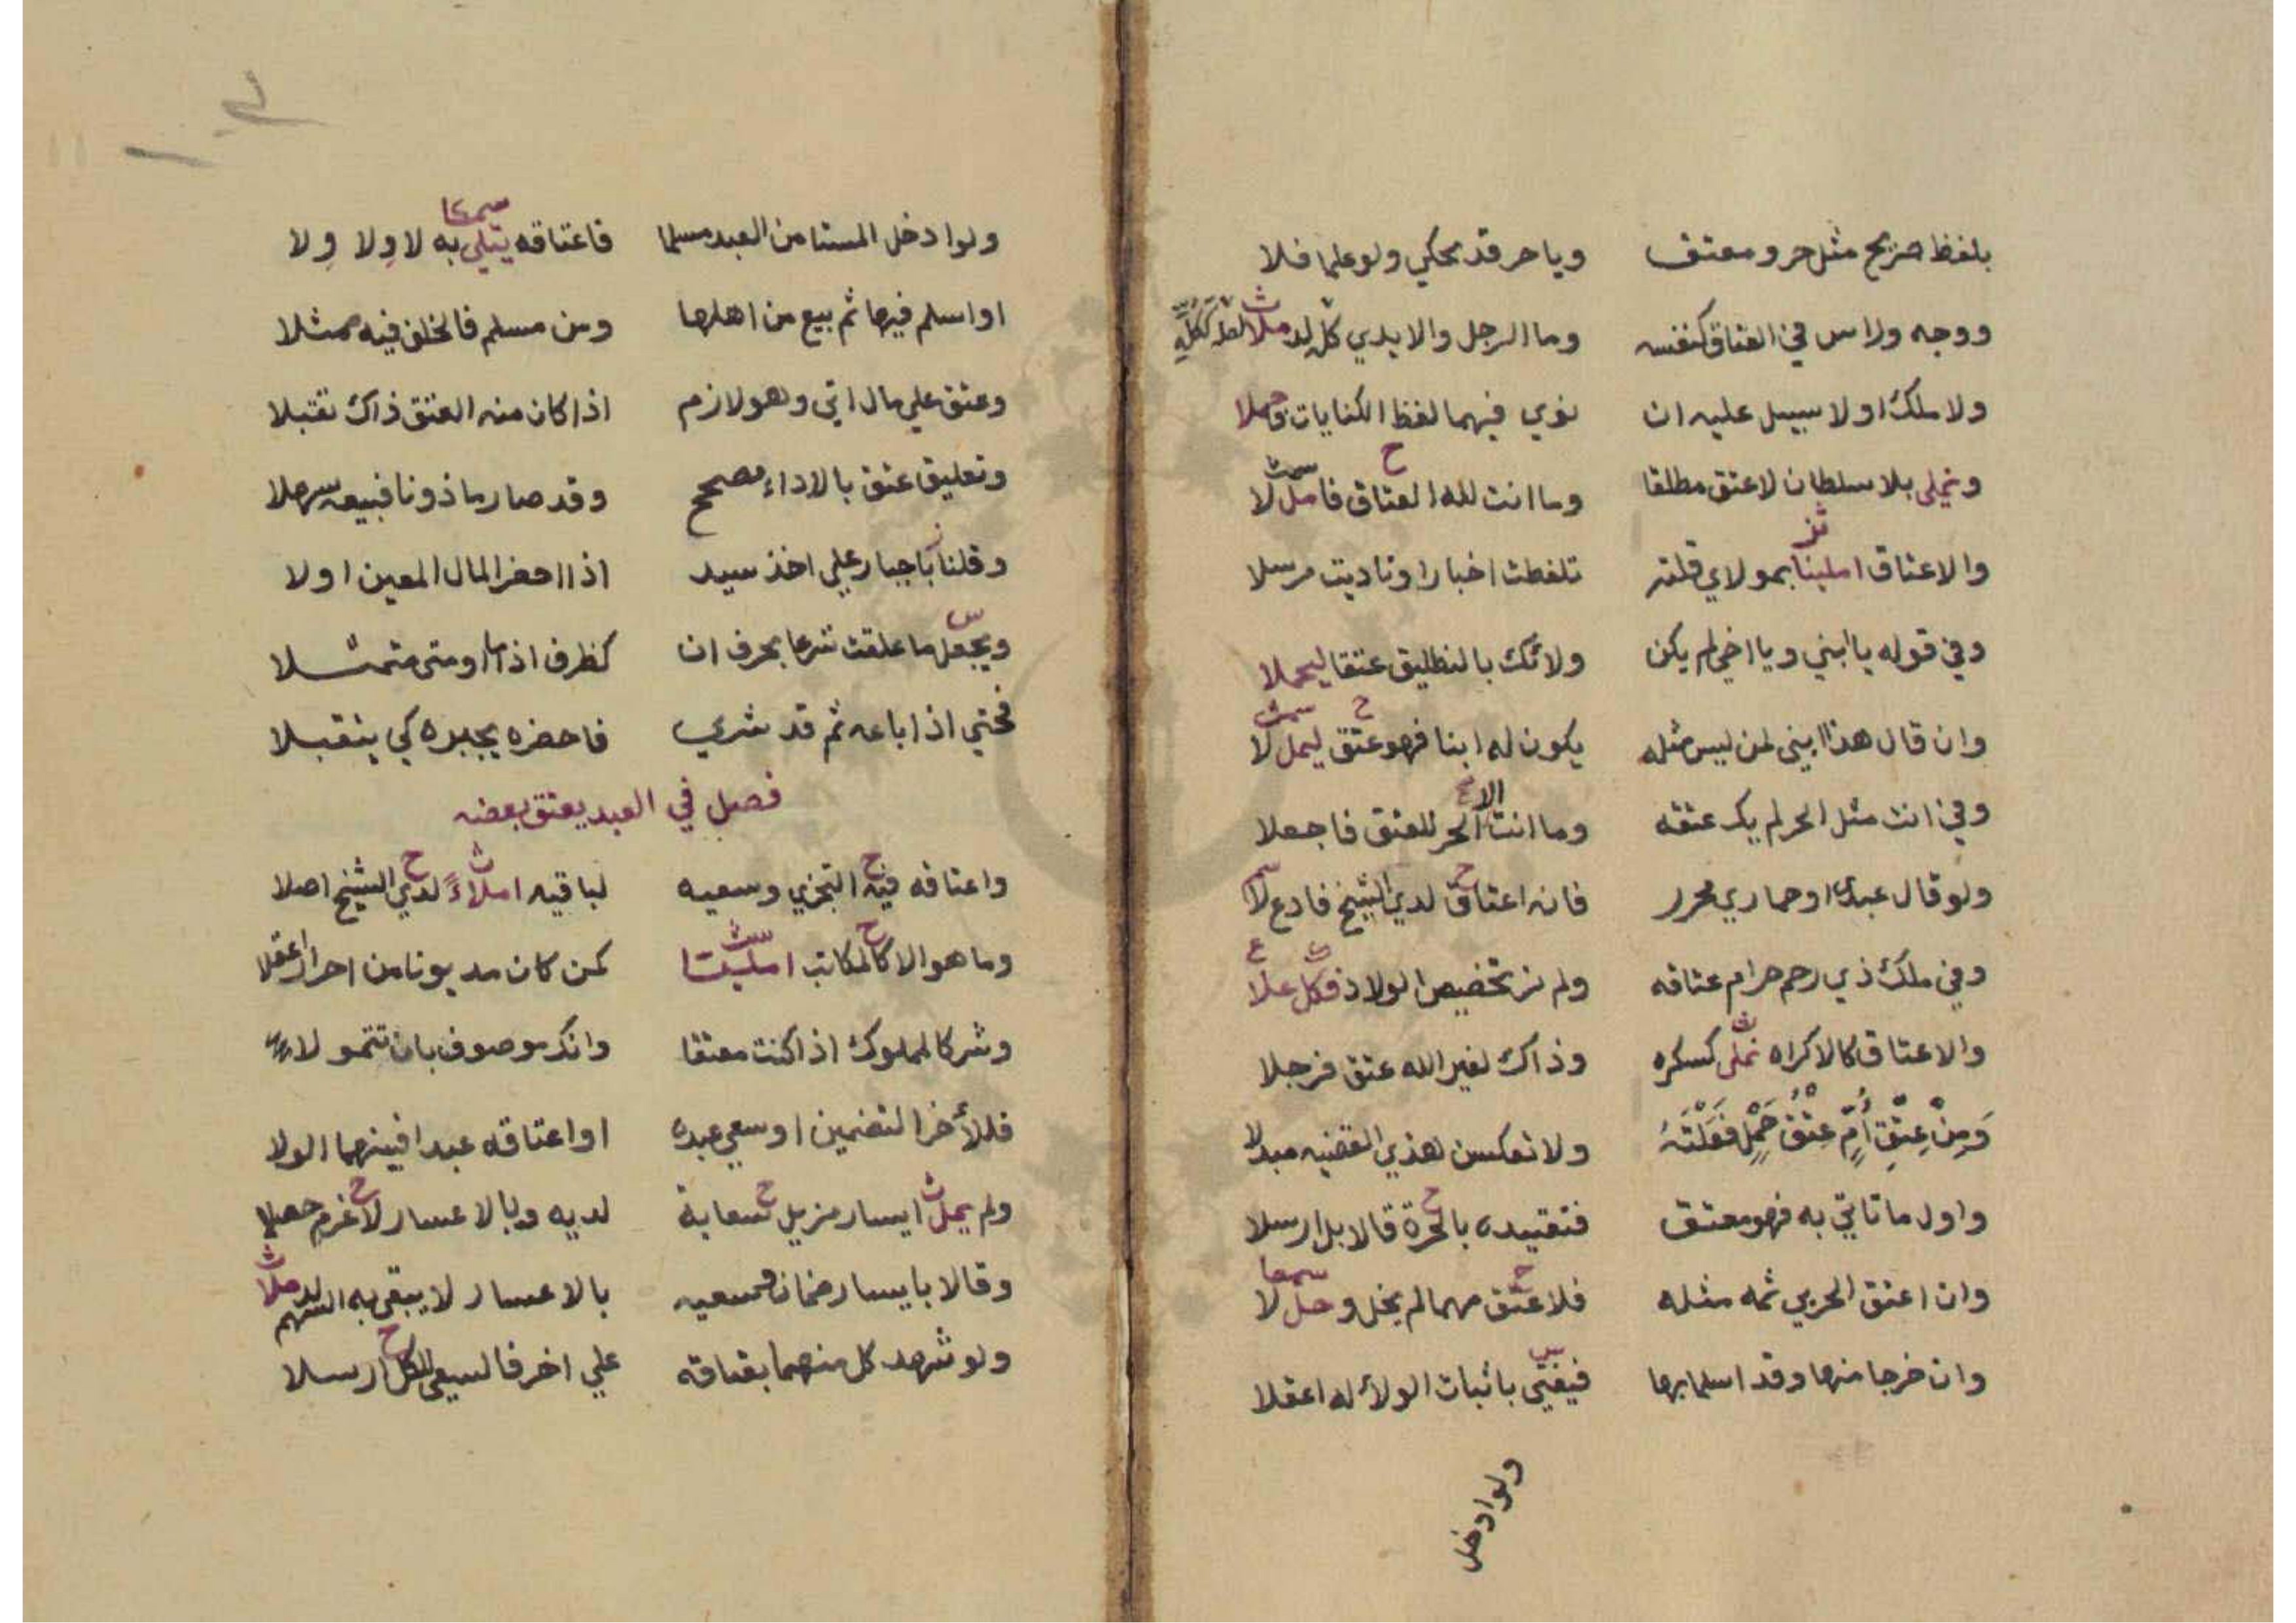 بلفظ صريح مثل حر ومعتق ويا حر قد يحكي ولو علما فلا
ووجه وراس في العتاق كنفسه وما الرجل والايدي كل لد ملا
ولا ملك او لا سبيل عليه ان نوي فيهما لفظ الكنايات
ونجلى بلا سلطان لا عتق مطلقا وما انت لله العتاق فامل لا
والاعتاق املينا بمولاي قلته تلفظت اخبارا وناديت مرسلا
وفي قوله يا ابني ويا اخي لم يكن ولا تك بالتطليق عتقا ليحملا
وان قال هذا ابني لمن ليس مثله يكون له ابنا فهو عتق ليمل لا
وفي انت مثل الحر لم يك عتقه وما انت الا الحر للعتق فاجعلا
ولو قال عبدي او حماري محرر فانه اعتاق لدي الشيخ فادع لا
وفي ملك ذي رحم حرام عتاقه ولم نر تخصيص الولاد فكل علا
والاعتاق كالاكراه نملى كسكره وذاك لغير الله عتق فرجلا
وَمِنْ عِتْقِ أُمٍّ عِتْقُ حَمْلٍ فَعَلْتَهُ ولا تعكسن هذي القضيه مبدلا
واول ما تاتي به فهو معتق فتقييده بالحرة قالا بل ارسلا
وان اعتق الحربي ثمه مثله فلا عتق مهما لم يخل وحل لا
وان خرجا منها وقد اسلما بها فيفتي باثبات الولاء له اعقلا
ولو ادخل
ولو ادخل المستامن العبد مسلما فاعتاقه يتلي به لا وِلا وِلا
او اسلم فيها ثم بيع من اهلها ومن مسلم فالخلف فيه ممثلا
وعتق علي مال اتي وهو لازم اذا كان منه العتق ذاك تقبلا
وتعليق عتق بالاداء مصحح وقد صار ماذونا فبيعه سهلا
وقلنا باجبار علي اخذ سيد اذا احضر المال المعين اولا
ويجعل ما علقت شرعا بحرف ان كظرف اذا ما او متى متمثلا
فحتي اذا باعه ثم قد شري فاحضره يجبره كي يتقبلا
فصل في العبد يعتق بعضه
واعتاقه فيه التجزي وسعيه لباقيه املاءً لدي الشيخ اصلا
وما هو الا كالمكاتب امليتا كمن كان مديونا من احرار اعقلا
وشركا لمملوك اذا كنت معتقا وانك موصوف بان تتمولا
فللأخر التضمين او سعي عبده او اعتاقه عبدا فبينهما الولا
ولم يمل ايسار مزيل سعاية لديه وبالاعسار لا غرم جعلا
وقالا بايسار ضمان وسعيه بالاعسار لا يبقي به السهم لد ملا
ولو شهد كل منهما بعتاقه علي اخر فالسعي للكل ارسلا